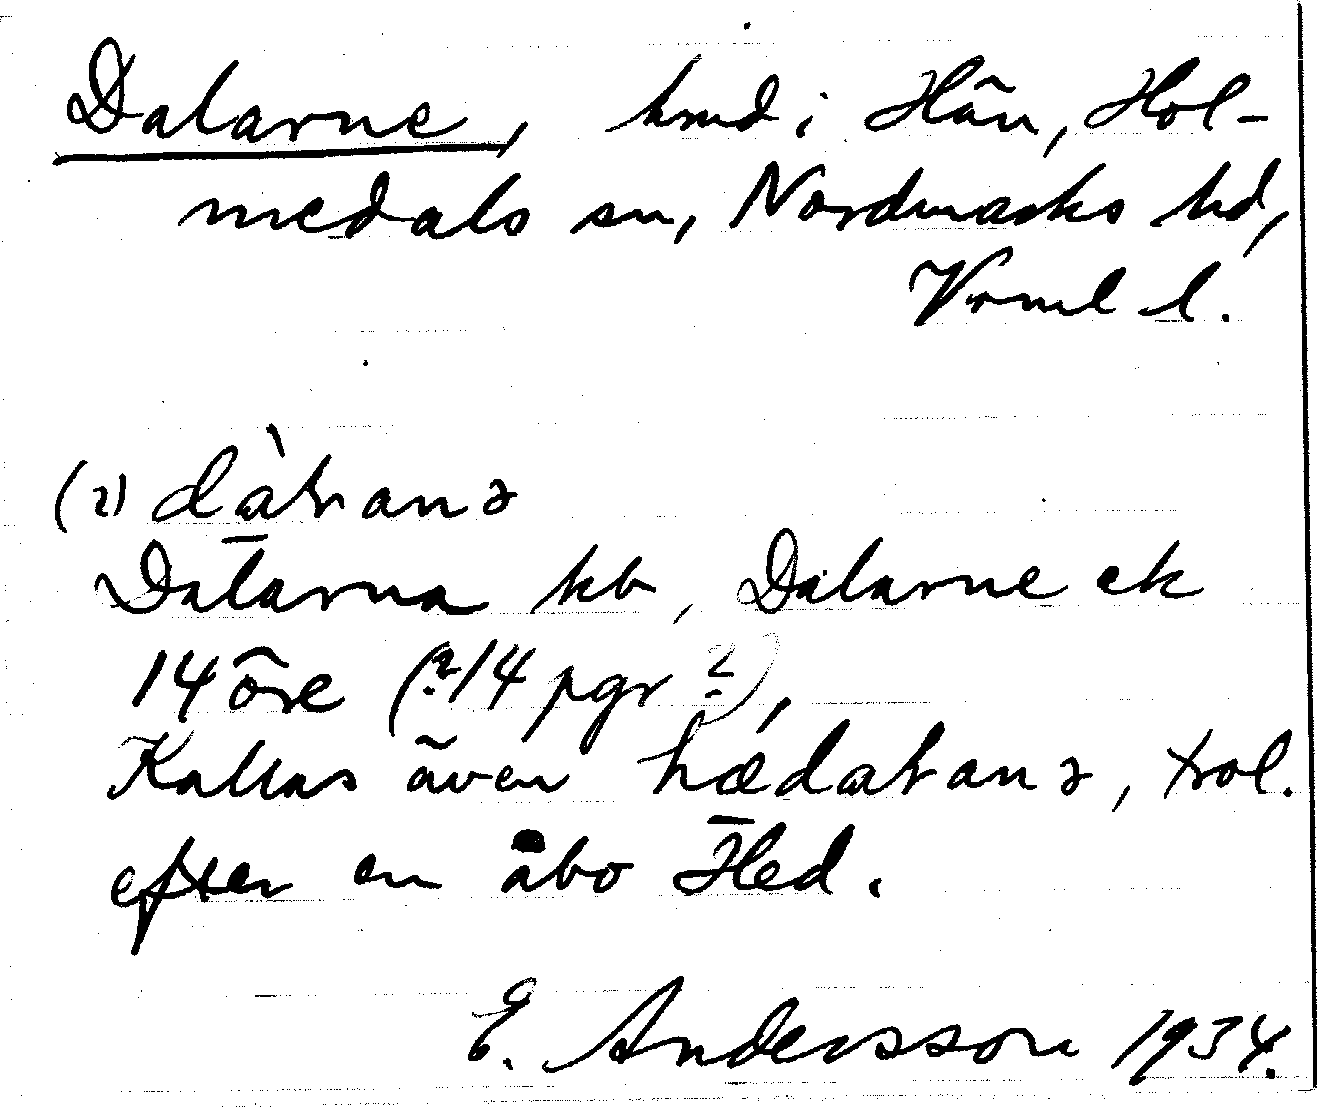 Dalarne, hmd i Hän, Hol-
medals sn, Nordmarks hd,
Vrml l.
(i) dàɽanə
Dalarna kb, Dalarne ek
14 öre (?14 pgr?),
Kallas även hædaɽanə, trol.
efter en åbo Hed.
E. Andersson 1934.